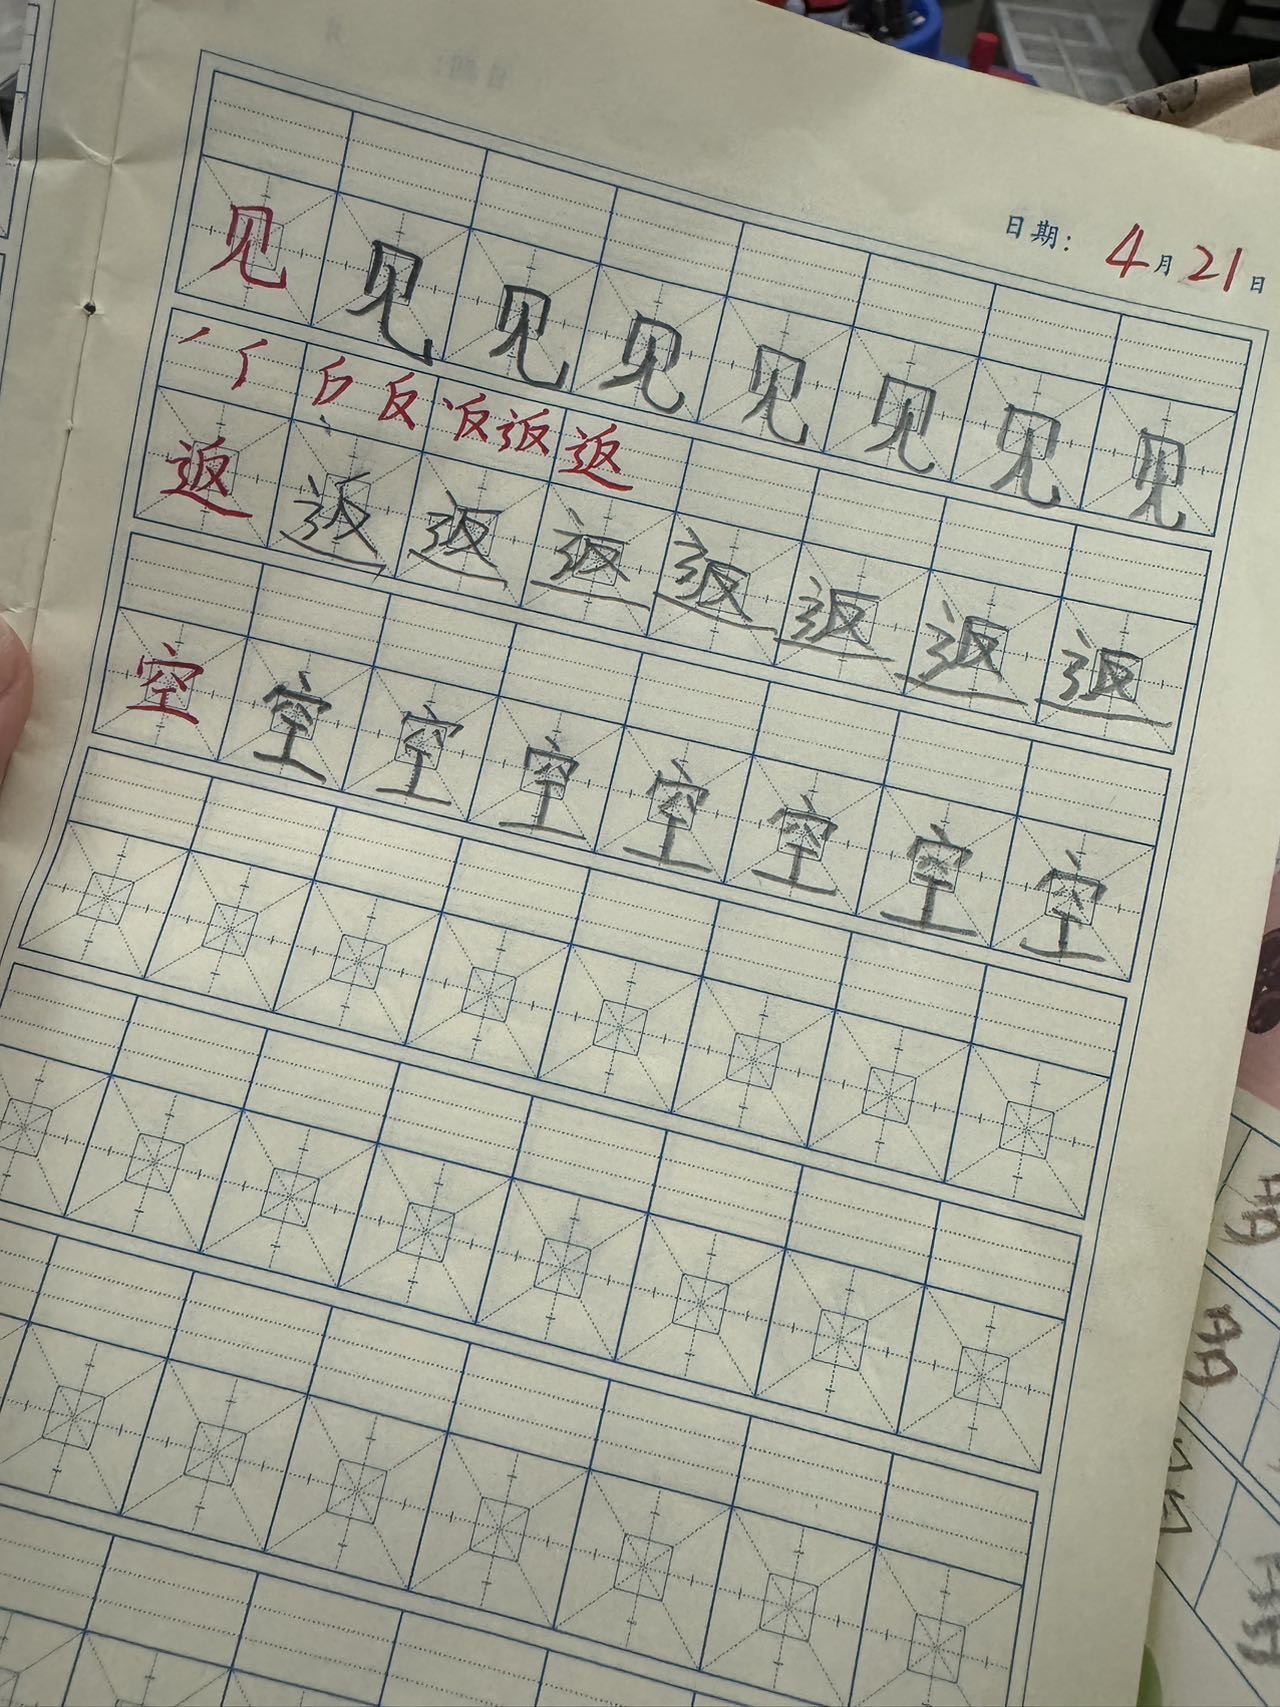 日期： 4月21日
见 见 见 见 见 见 见 见
返 返 返 返 返 返 返 返
空 空 空 空 空 空 空 空